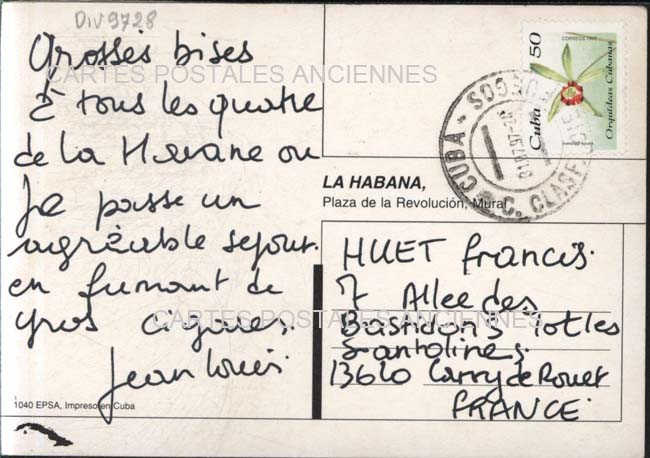 DIV9728
Grosses bises
à tous les quatre
de la Havane ou
je passe un
agréable sejour
en fumant de
gros cigares.
Jean Louis
1040 EPSA, Impreso en Cuba
CORREOS
50
Cuba
Orquídeas Cubanas
CUBA
C. CLASE
LA HABANA,
Plaza de la Revolución, Mural
HUET francis.
7 Allee des
Bastidons lot les
Santolines.
13620 Carry de Rouet
FRANCE
CARTES POSTALES ANCIENNES
CARTES POSTALES ANCIENNES